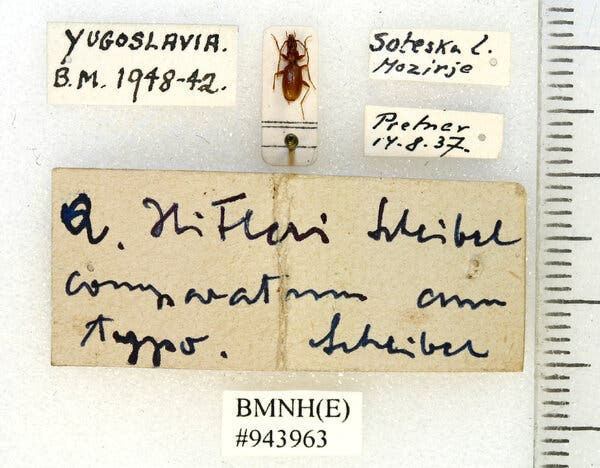 YUGOSLAVIA.
B.M. 1948-42.
Soteska l.
Mozirje
Pretner
14-8-37.
A. Hitleri Scheibel
comparatum cum
typo. Scheibel
BMNH(E)
#943963